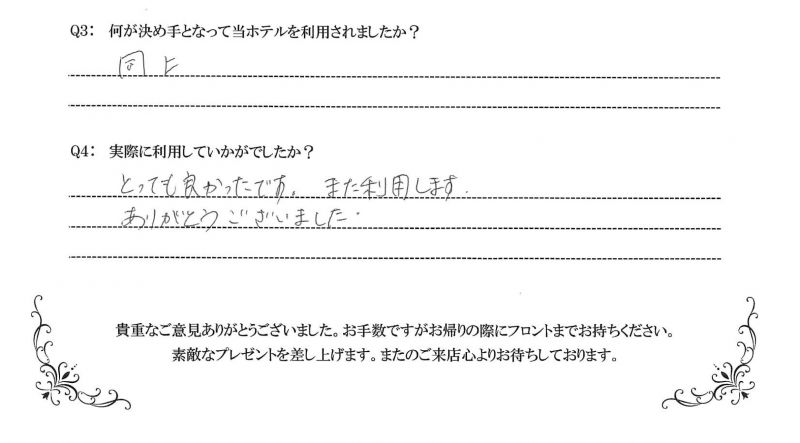 Q3: 何が決め手となって当ホテルを利用されましたか?
同上
Q4: 実際に利用していかがでしたか?
とっても良かったです。また利用します.
ありがとうございました.
貴重なご意見ありがとうございました。お手数ですがお帰りの際にフロントまでお持ちください。
素敵なプレゼントを差し上げます。またのご来店心よりお待ちしております。